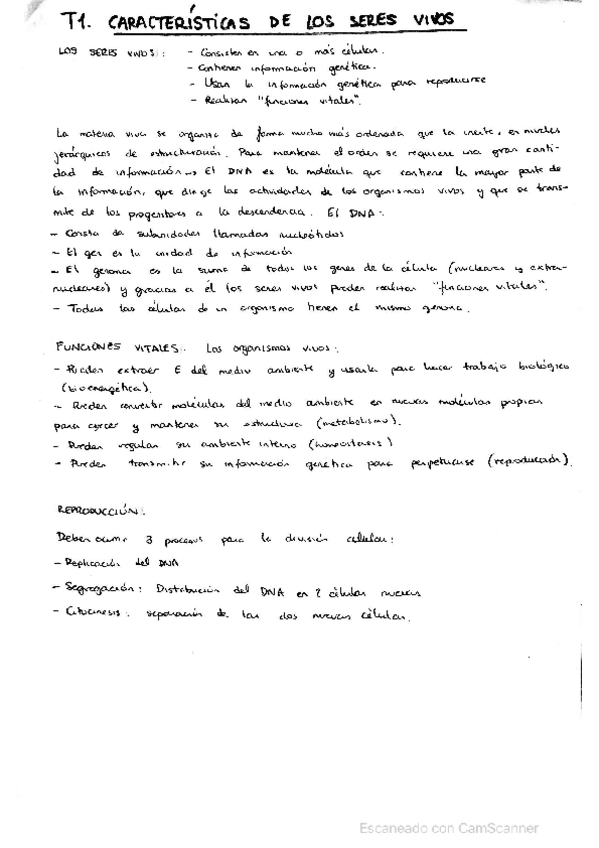 T1. CARACTERÍSTICAS DE LOS SERES VIVOS
LOS SERES VIVOS: - Consisten en una o más células.
- Contienen información genética.
- Usan la información genética para reproducirse
- Realizan "funciones vitales".
La materia viva se organiza de forma mucho más ordenada que la inerte, en niveles
jerárquicos de estructuración. Para mantener el orden se requiere una gran canti-
dad de información → El DNA es la molécula que contiene la mayor parte de
la información, que dirige las actividades de los organismos vivos y que se trans-
mite de los progenitores a la descendencia. El DNA:
- Consta de subunidades llamadas nucleótidos
- El gen es la unidad de información
- El genoma es la suma de todos los genes de la célula (nucleares y extra-
nucleares) y gracias a él los seres vivos pueden realizar "funciones vitales".
- Todas las células de un organismo tienen el mismo genoma.
FUNCIONES VITALES: Los organismos vivos:
- Pueden extraer E del medio ambiente y usarla para hacer trabajo biológico
(bioenergética).
- Pueden convertir moléculas del medio ambiente en nuevas moléculas propias
para crecer y mantener su estructura (metabolismo).
- Pueden regular su ambiente interno (homeostasis)
- Pueden transmitir su información genética para perpetuarse (reproducción).
REPRODUCCIÓN:
Deben ocurrir 3 procesos para la división celular:
- Replicación del DNA
- Segregación: Distribución del DNA en 2 células nuevas
- Citocinesis: separación de las dos nuevas células.
Escaneado con CamScanner